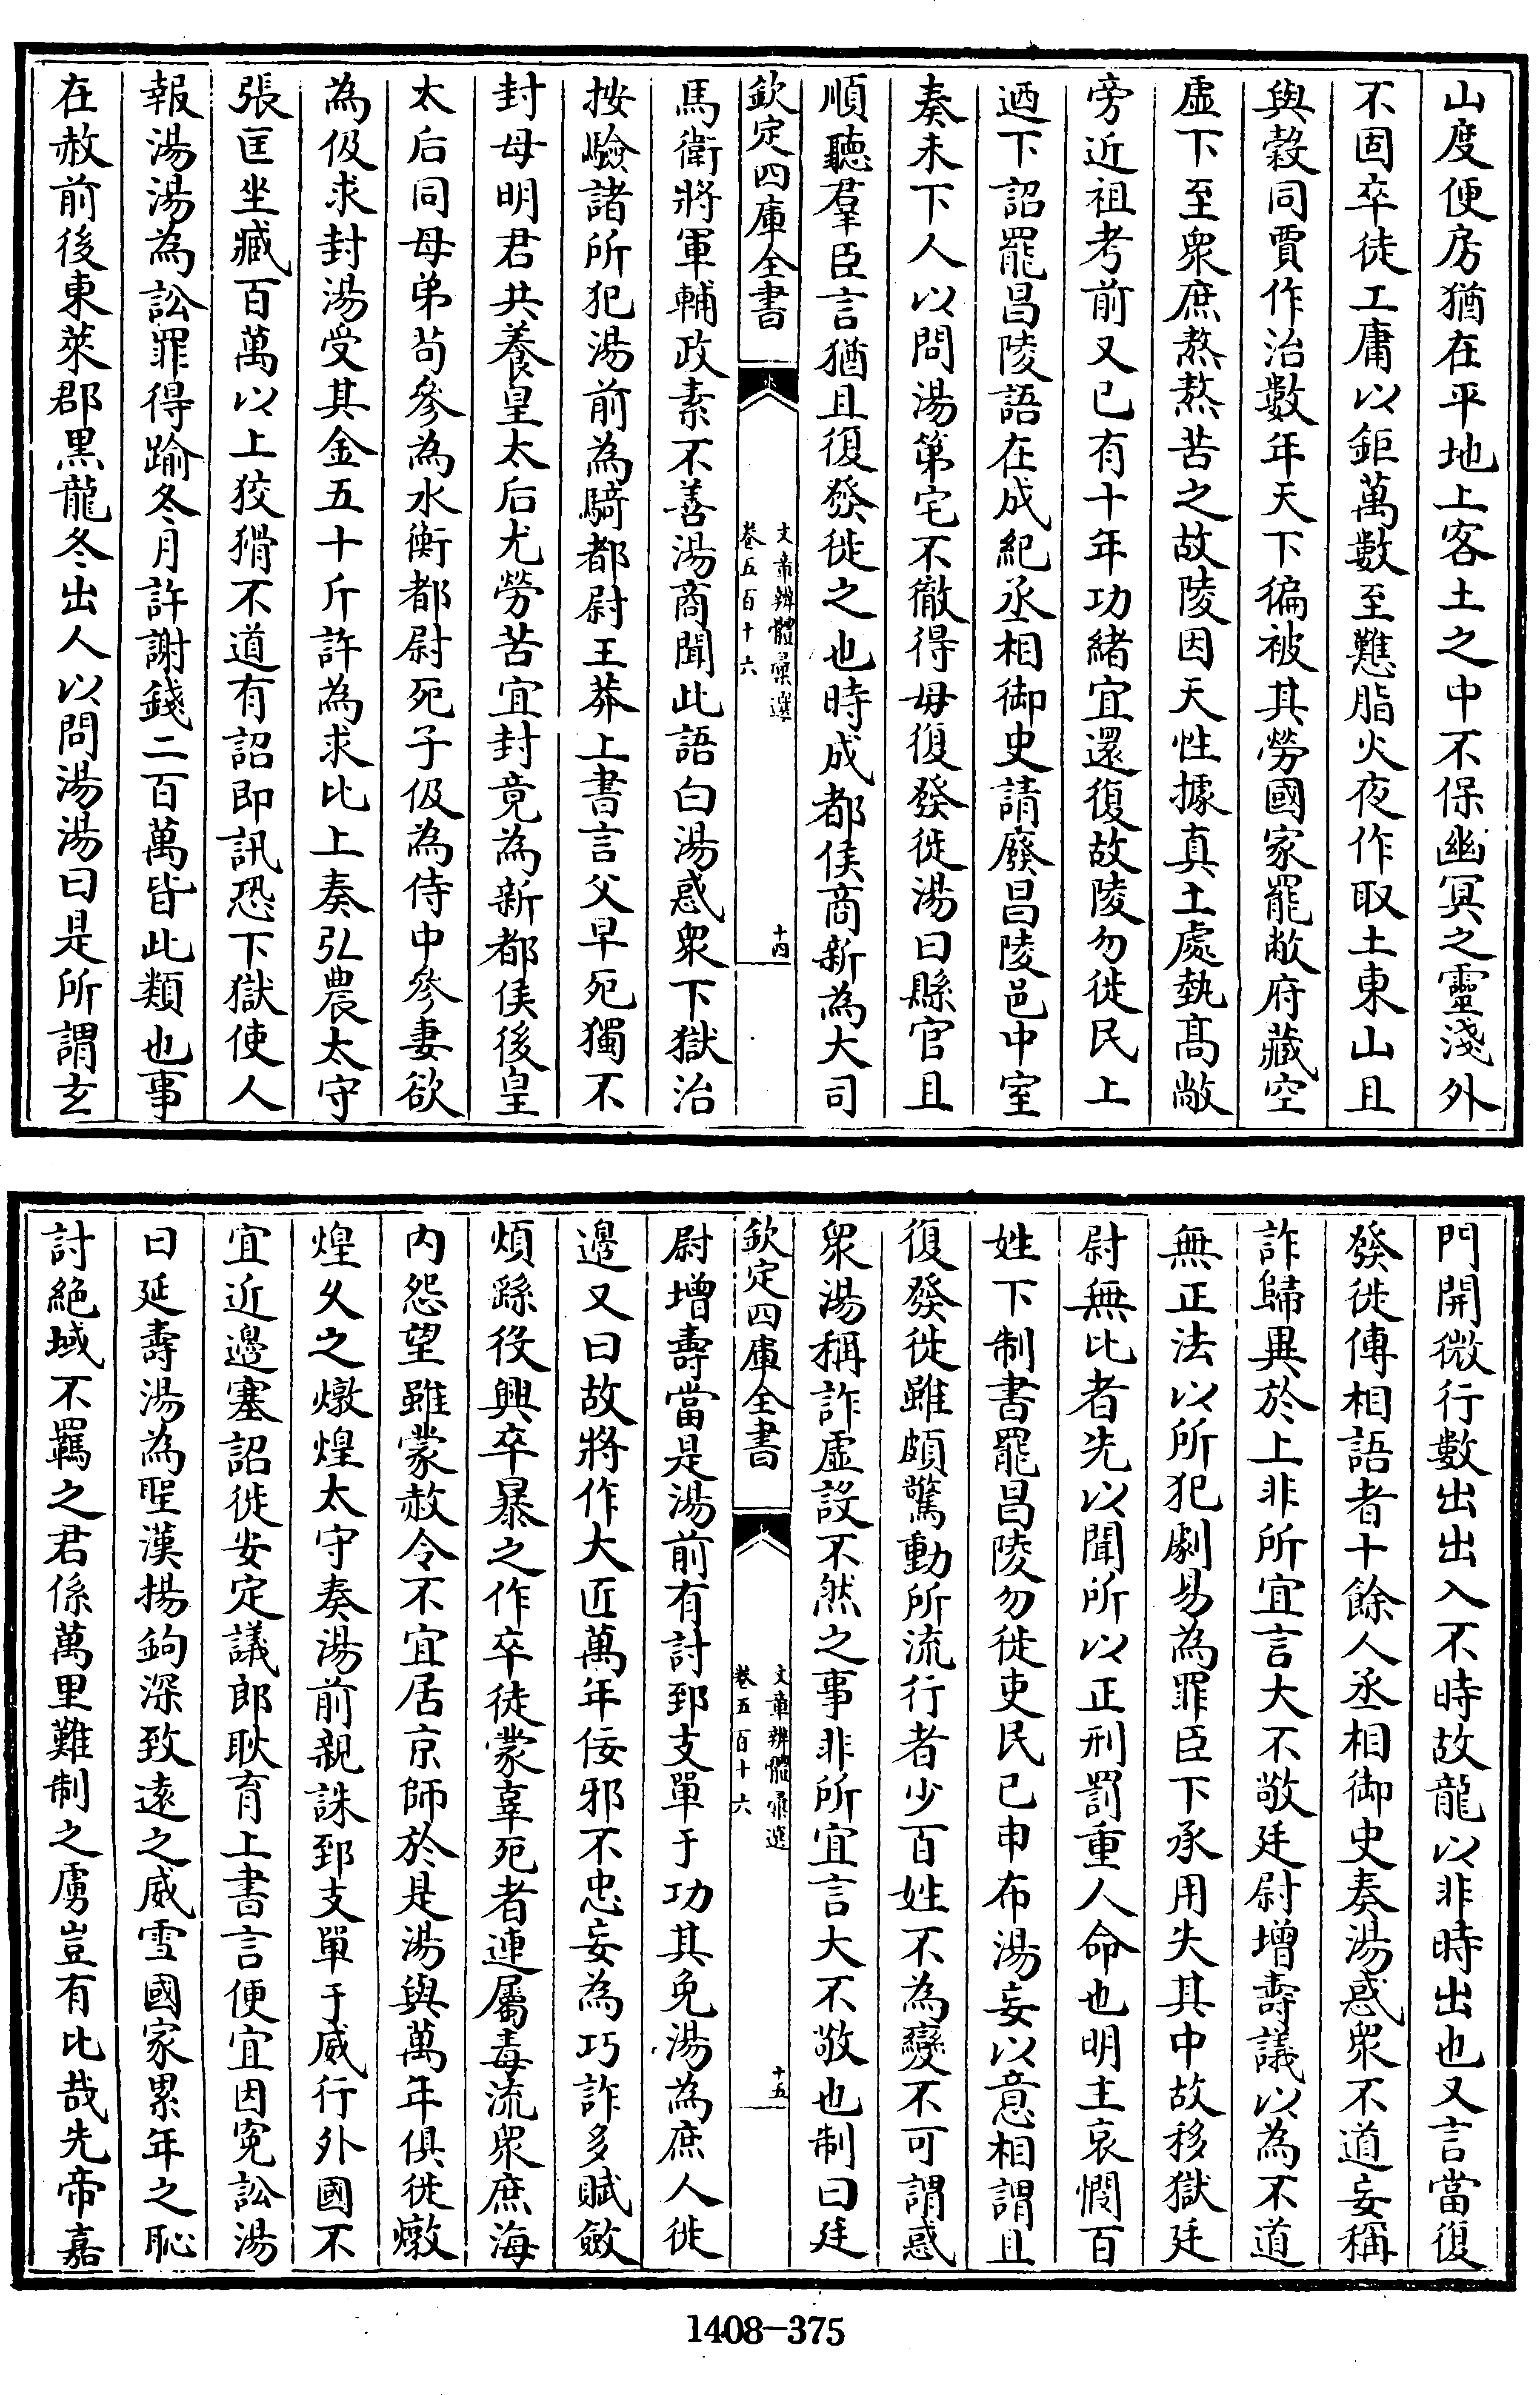 山度便房猶在平地上客土之中不保幽冥之靈淺外
不固卒徒工庸以鉅萬數至難脂火夜作取土東山且
與穀同賈作治數年天下徧被其勞國家罷敝府藏空
虚下至衆庶熬熬苦之故陵因天性據真土處埶髙敞
旁近祖考前又已有十年功緒宜還復故陵勿徙民上
迺下詔罷昌陵語在成紀丞相御史請廢昌陵邑中室
奏未下人以問湯第宅不徹得毋復發徙湯曰縣官且
順聽羣臣言猶且復發徙之也時成都侯商新為大司
欽定四庫全書
文章辨體彚選
卷五百十六
十四
馬衛將軍輔政素不善湯商聞此語白湯惑衆下獄治
按驗諸所犯湯前為騎都尉王莽上書言父早死獨不
封母明君共養皇太后尤勞苦宜封竟為新都侯後皇
太后同母弟茍參為水衡都尉死子伋為侍中參妻欲
為伋求封湯受其金五十斤許為求比上奏弘農太守
張匡坐臧百萬以上狡猾不道有詔即訊恐下獄使人
報湯湯為訟罪得踰冬月許謝錢二百萬皆此類也事
在赦前後東萊郡黒龍冬出人以問湯湯曰是所謂玄
門開微行數出出入不時故龍以非時出也又言當復
發徙傳相語者十餘人丞相御史奏湯惑衆不道妄稱
詐歸異於上非所宜言大不敬廷尉增壽議以為不道
無正法以所犯劇易為罪臣下承用失其中故移獄廷
尉無比者先以聞所以正刑罰重人命也明主哀憫百
姓下制書罷昌陵勿徙吏民已申布湯妄以意相謂且
復發徙雖頗驚動所流行者少百姓不為變不可謂惑
衆湯稱詐虚設不然之事非所宜言大不敬也制曰廷
欽定四庫全書
文章辨體彚選
卷五百十六
十五
尉增壽當是湯前有討郅支單于功其免湯為庶人徙
邊又曰故將作大匠萬年佞邪不忠妄為巧詐多賦斂
煩繇役興卒暴之作卒徒蒙辜死者連屬毒流衆庶海
内怨望雖蒙赦令不宜居京師於是湯與萬年俱徙燉
煌乆之燉煌太守奏湯前親誅郅支單于威行外國不
宜近邊塞詔徙安定議郎耿育上書言便宜因寃訟湯
曰延壽湯為聖漢揚鉤深致逺之威雪國家累年之恥
討絶域不羈之君係萬里難制之虜豈有比哉先帝嘉
1408-375